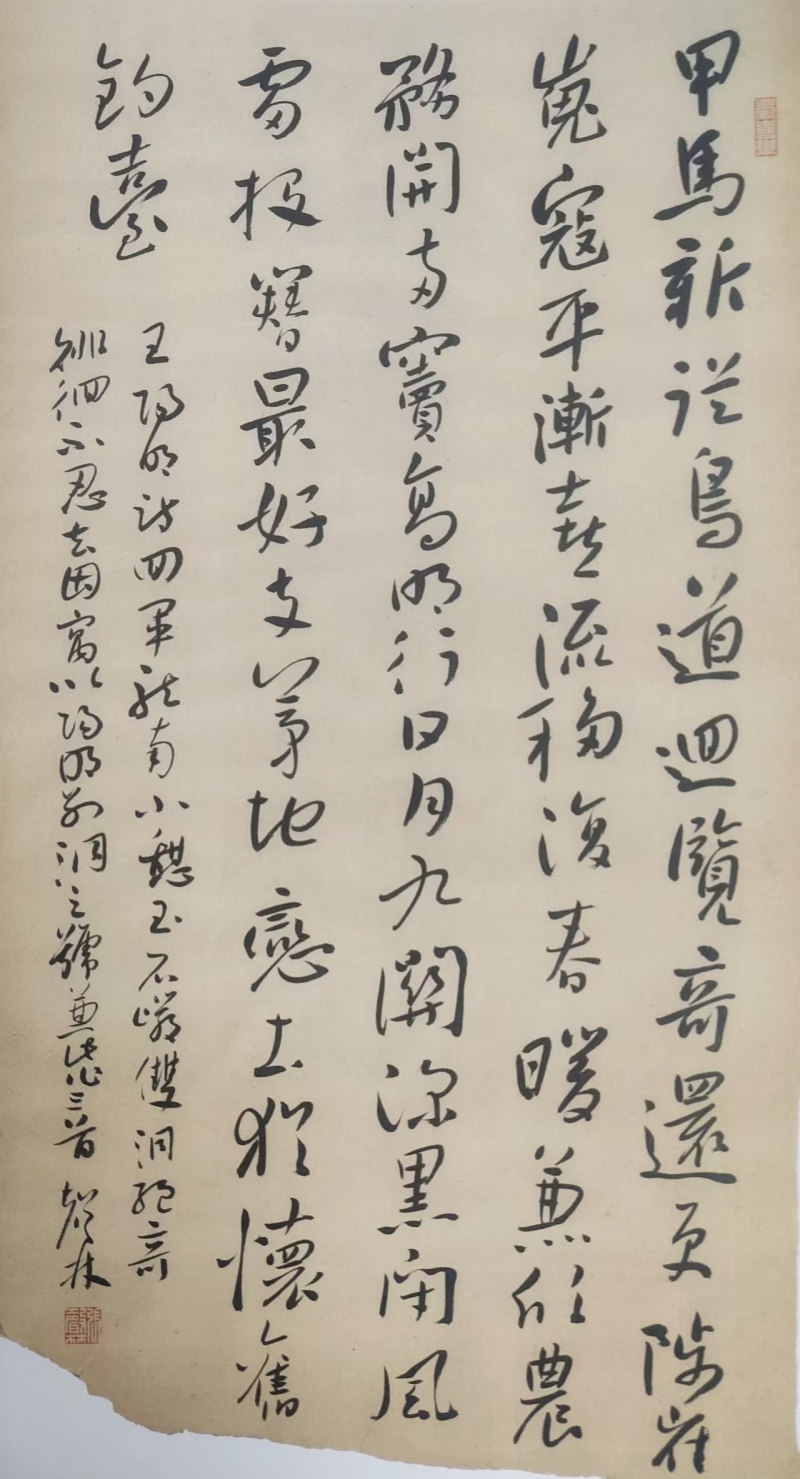 甲馬新從鳥道迴覽奇還更陟崔
嵬寇平漸喜流移復春暖兼欣農
務開兩竇高明行日月九關深黑閉風
雷投簪最好支茅地戀土猶懷舊
釣臺
王陽明詩回軍龍南小憩玉石巖雙洞絕奇
徘徊不忍去因寓以陽明別洞之號兼此三首